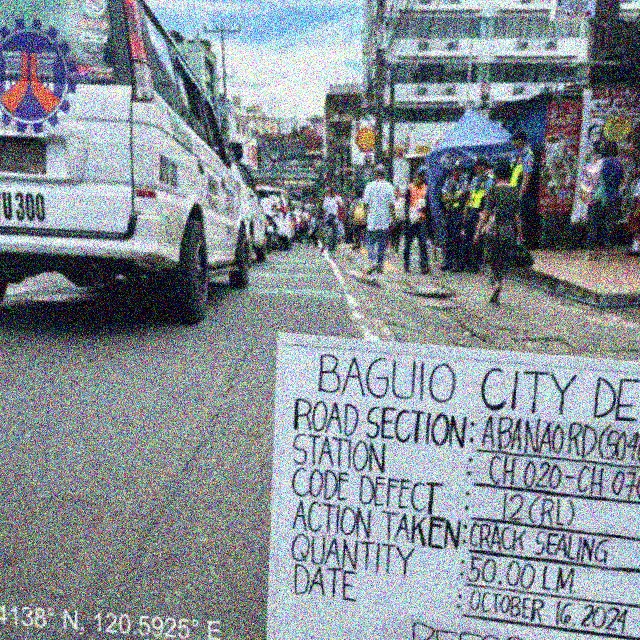 U 300
BAGUIO CITY DE
ROAD SECTION: ABANAO RD(S04
STATION : CH 020-CH 07
CODE DEFECT : 12 (RL)
ACTION TAKEN: CRACK SEALING
QUANTITY : 50.00 LM
DATE : OCTOBER 16, 2024
4138° N, 120.5925° E